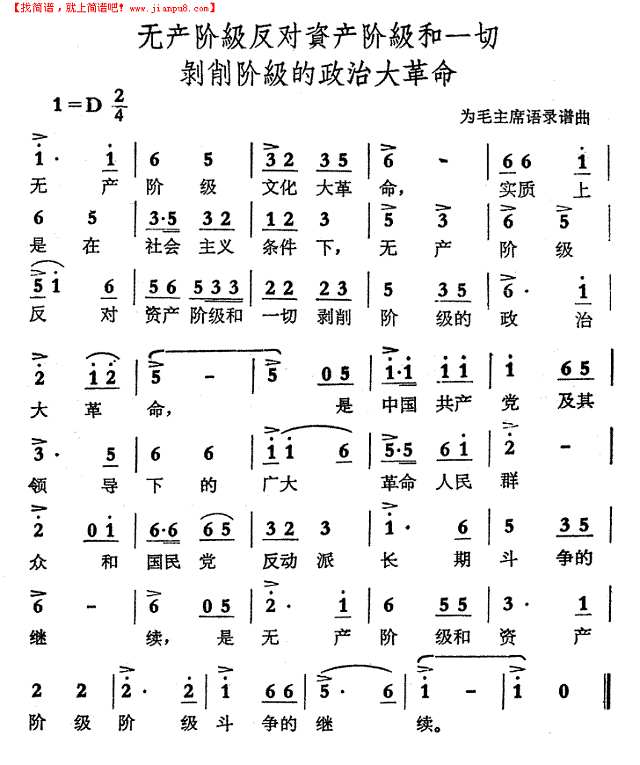 【找简谱，就上简谱吧！www.jianpu8.com】
无产阶級反对資产阶級和一切
剝削阶級的政治大革命
1=D 2/4
为毛主席语录谱曲
1· 1 | 6 5 | 3 2 3 5 | 6 - | 6 6 1
无 产 阶 级 文化 大革 命， 实质 上
6 5 | 3·5 3 2 | 1 2 3 | 5 3 | 6 5
是 在 社会 主义 条件 下，无 产 阶 级
5 1 6 | 5 6 5 3 3 | 2 2 2 3 | 5 3 5 | 6· 1
反 对 资产 阶级和 一切 剥削 阶 级的 政 治
2 1 2 | 5 - | 5 0 5 | 1·1 1 1 | 1 6 5
大 革 命， 是 中国 共产 党 及其
3· 5 | 6 6 | 1 1 6 | 5·5 6 1 | 2 -
领 导 下 的 广大 革命 人民 群
2 0 1 | 6·6 6 5 | 3 2 3 | 1· 6 | 5 3 5
众 和 国民 党 反动 派 长 期 斗 争的
6 - | 6 0 5 | 2· 1 | 6 5 5 | 3· 1
继 续，是 无 产 阶 级和 资 产
2 2 | 2· 2 | 1 6 6 | 5· 6 | 1 - | 1 0
阶 级 阶 级 斗 争的 继 续。